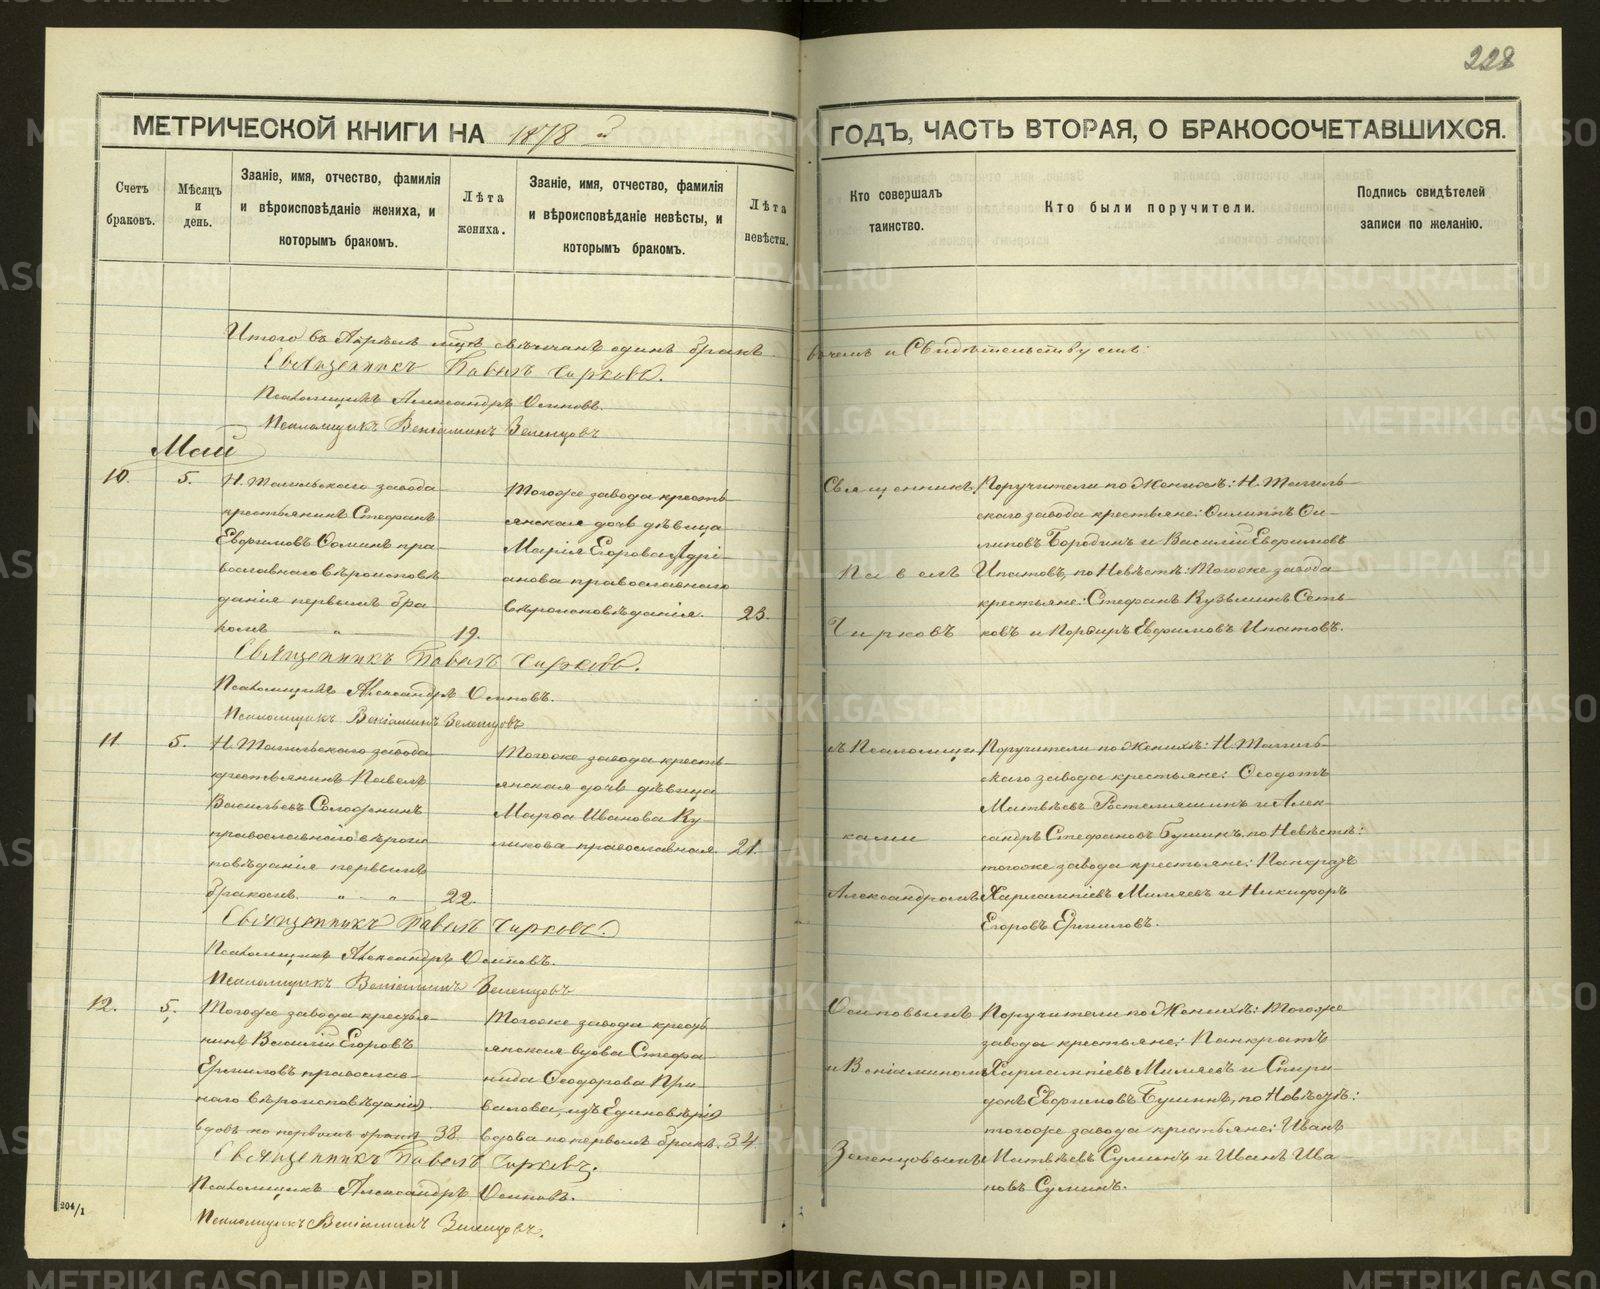 228
МЕТРИЧЕСКОЙ КНИГИ НА 1878 й
ГОДЪ, ЧАСТЬ ВТОРАЯ, О БРАКОСОЧЕТАВШИХСЯ.
Счетъ
браковъ.
Мѣсяцъ
и
день.
Званіе, имя, отчество, фамилія
и вѣроисповѣданіе жениха, и
которымъ бракомъ.
Лѣта
жениха.
Званіе, имя, отчество, фамилія
и вѣроисповѣданіе невѣсты, и
которымъ бракомъ.
Лѣта
невѣсты.
Кто совершалъ
таинство.
Кто были поручители.
Подпись свидѣтелей
записи по желанію.
Итого въ Апрѣлѣ мцѣ свѣнчанъ одинъ бракъ
въ чемъ и Свидѣтельствуемъ:
Священникъ Павелъ Чирковъ.
Псаломщикъ Александръ Осиповъ.
Псаломщикъ Веніаминъ Зеленцовъ
Май
10.
5.
Н. Тагильскаго завода
крестьянинъ Стефанъ
Евфимовъ Ѳоминъ пра-
вославнаго вѣроисповѣ
данія первымъ бра
комъ
19.
Тогоже завода кресть
янская дочь дѣвица
Марія Егорова Адрі-
анова православнаго
вѣроисповѣданія.
23.
Священникъ
Павелъ
Чирковъ
Поручители по Женихѣ: Н. Тагиль-
скаго завода крестьяне: Филиппъ Фи-
липовъ Бородинъ и Василій Евфимовъ
Ипатовъ, по Невѣстѣ: Тогоже завода
крестьяне: Стефанъ Кузьминъ Сеть-
ковъ и Порфиръ Евфимовъ Ипатовъ.
Священникъ Павелъ Чирковъ.
Псаломщикъ Александръ Осиповъ.
Псаломщикъ Веніаминъ Зеленцовъ
11
5.
Н. Тагильскаго завода
крестьянинъ Павелъ
Васильевъ
православнаго вѣроис
повѣданія первымъ
бракомъ
22.
Тогоже завода кресть-
янская дочь дѣвица
Марѳа Иванова Ку-
ликова православная
21.
съ Псаломщи
ками
Александромъ
Поручители по Женихѣ: Н. Тагиль-
скаго завода крестьяне: Ѳеодотъ
Матвѣевъ и Алек-
сандръ Стефановъ Бушинъ, по Невѣстѣ:
тогоже завода крестьяне: Панкратъ
Харлампіевъ Миляевъ и Никифоръ
Егоровъ Ермиловъ.
Священникъ Павелъ Чирковъ.
Псаломщикъ Александръ Осиповъ.
Псаломщикъ Веніаминъ Зеленцовъ
12.
5.
Тогоже завода крестья-
нинъ Василій Егоровъ
Ермиловъ православ-
наго вѣроисповѣданія
вдовъ по первомъ бракѣ
38.
Тогоже завода кресть-
янская вдова Стефа-
нида Ѳеодорова При-
валова, изъ Единовѣрія
вдова по первомъ бракѣ.
34
Осиповымъ
и Веніаминомъ
Зеленцовымъ
Поручители по Женихѣ: Тогоже
завода крестьяне: Панкратъ
Харлампіевъ Миляевъ и Спири
донъ Евфимовъ Бушинъ, по Невѣстѣ:
тогоже завода крестьяне: Иванъ
Матвѣевъ Суминъ и Иванъ Ива-
новъ Суминъ.
Священникъ Павелъ Чирковъ.
Псаломщикъ Александръ Осиповъ.
Псаломщикъ Веніаминъ Зеленцовъ.
204/1
METRIKI.GASO-URAL.RU